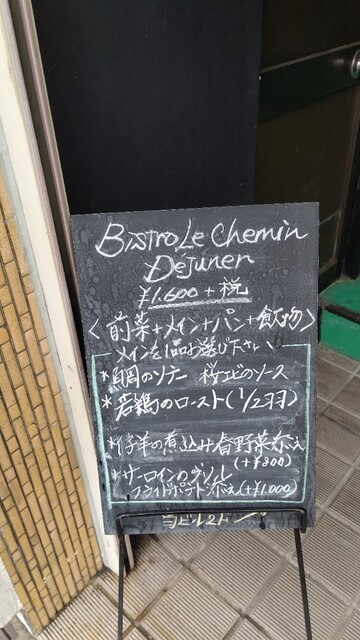 Bistro Le Chemin
Déjuner
¥1.600+税
〈前菜+メイン+パン+飲物〉
メインを1品お選び下さい
*真鯛のソテー 桜エビのソース
*若鶏のロースト(1/2羽)
*仔羊の煮込み春野菜添え
(+¥800)
*サーロインのグリル
フライドポテト添え(+¥1.000)
当ビル2F